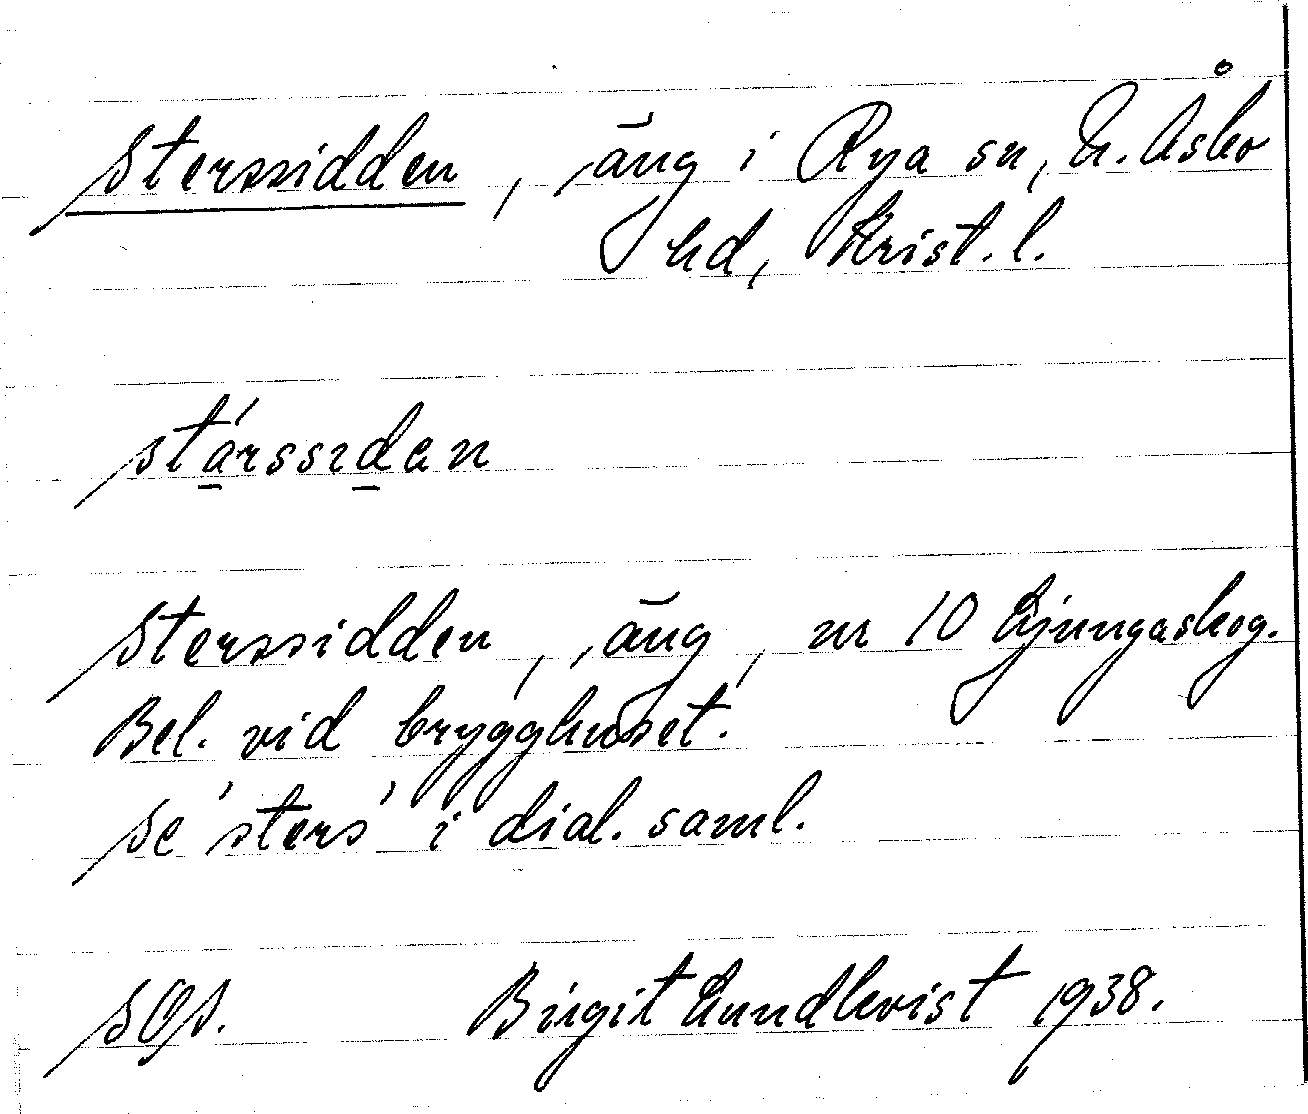 Sterssidden, äng i Rya sn, N. Åsbo
hd, Krist. l.
stárssıdan
Sterssidden, äng, nr 10 Ljungaskog.
Bel. vid brygghuset.
Se 'sters' i dial. saml.
SOS. Birgit Lundkvist 1938.